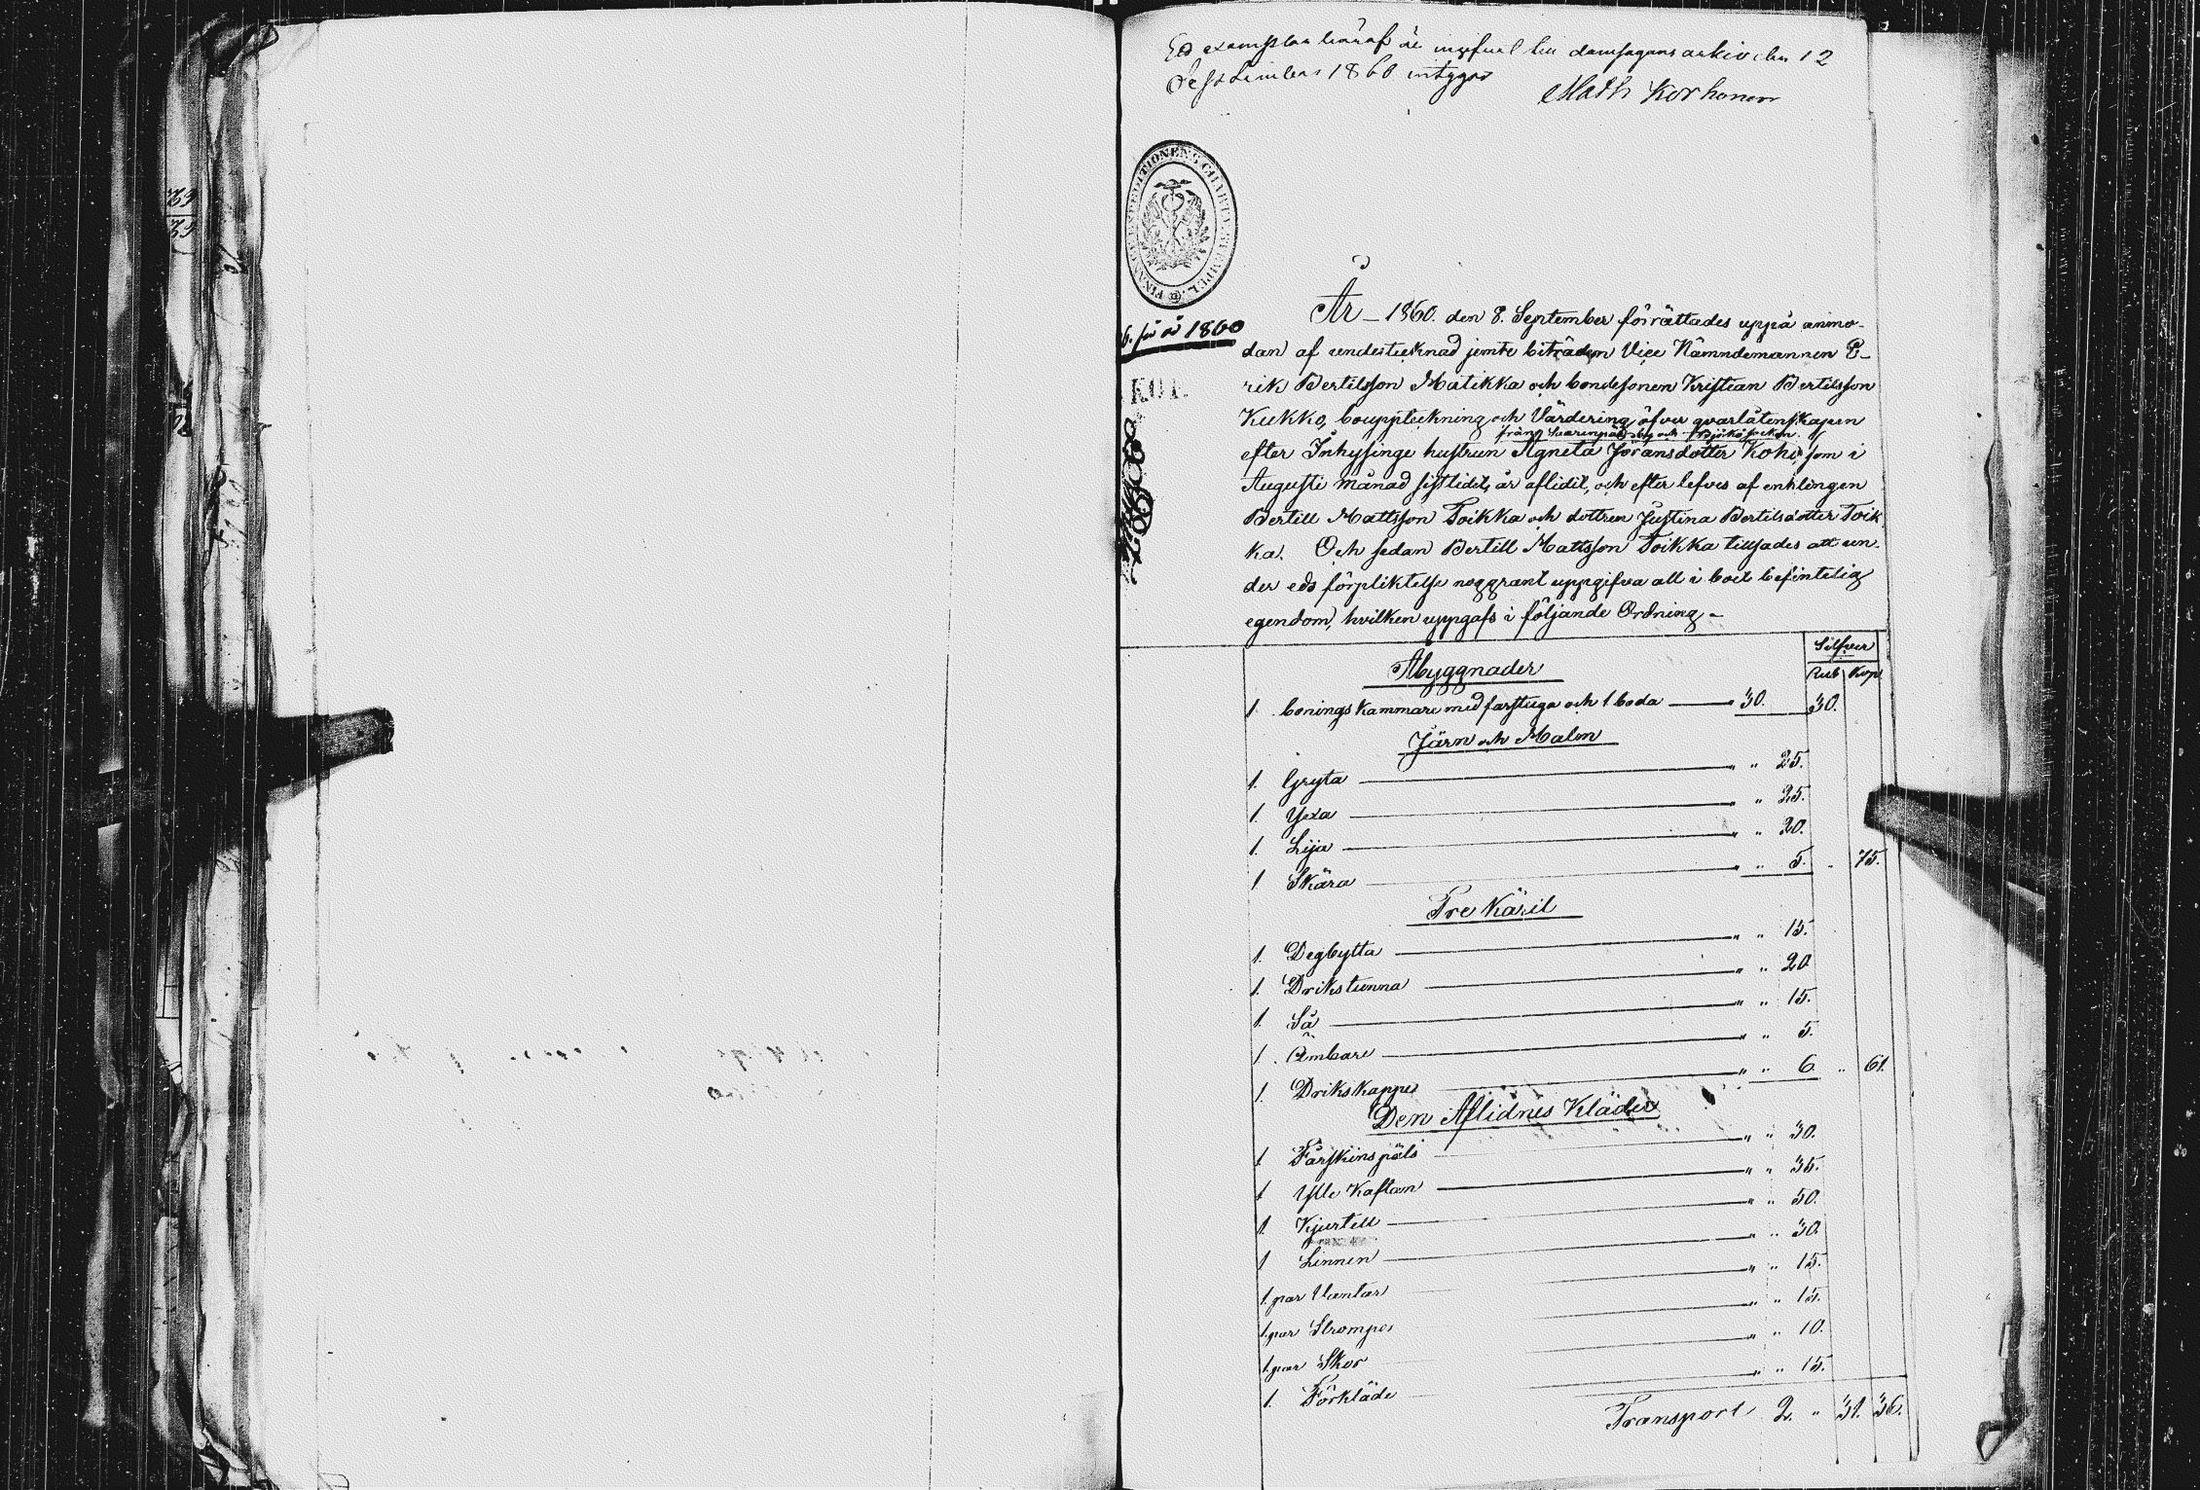 Ett exemplar häraf är ingifvet till domsagans arkiv den 12
September 1860 intygar
Math Korhonen
FINANS EXPEDITIONENS CHARTÆ STEMPEL
för år 1860
KOP.
År 1860. den 8. September förrättades uppå anmo-
dan af undertecknad jemte biträden Vice Nämndemannen E-
rik Bertilsson Matikka och bondesonen Kristian Bertilsson
Kukko, bouppteckning och Värdering öfver qvarlåtenskapen
från by och Björkö socken.
efter Inhysinge hustrun Agneta Jöransdotter Kohi, som i
Augusti månad sistlidet, är aflidit, och efter lefves af enklingen
Bertill Mattsson Toikka och dottren Justina Bertilsdotter Toik
ka. Och sedan Bertill Mattsson Toikka tillsades att un-
der eds förpliktelse noggrant uppgifva all i boet befintelig
egendom, hvilken uppgafs i följande Ordning -
Silfver
Åbyggnader
Rub Kop
1 bonings Kammare med farstuga och 1 boda — 30. 30.
Järn och Malm
1. Gryta — " " 25.
1. Yxa — " " 25.
1. Lija — " " 20.
1. Skära — " " 5. " 75.
Tre Käril
1. Degbytta — " " 15.
1. Drikstunna — " " 20
1. Så — " " 15.
1. Ämbare — " " 5.
1. Drikskappe — " " 6 " 61.
Den Aflidnes Kläder
1 Fårskinspäls — " " 30.
1 Ylle Kaftan — " " 35.
1. Kjurtell — " " 50.
1 Linnen — " " 30.
1. par Vantar — " " 15.
1. par Strompor — " " 15.
1. par Skor — " " 10.
1. Förkläde — " " 15.
Transport 2. " 31. 36.